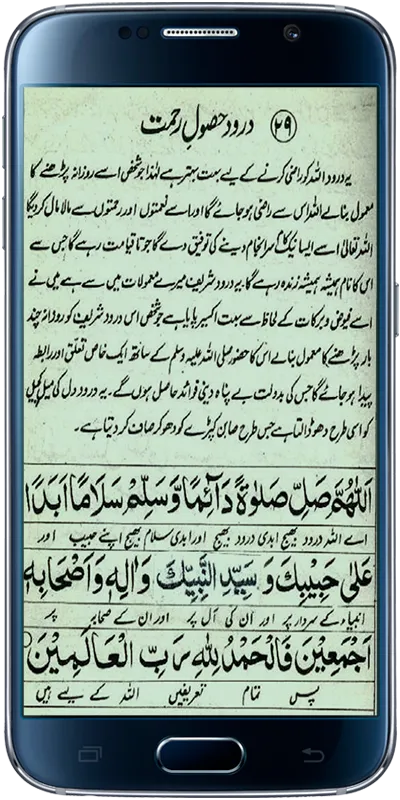 ۲۹ درود حصولِ رحمت
یہ درود اللہ کو راضی کرنے کے لیے بہت بہتر ہے لہٰذا جو شخص اسے روزانہ پڑھنے کا
معمول بنالے اللہ اس سے راضی ہو جائے گا اور اسے نعمتوں اور رحمتوں سے مالا مال کر دیگا
اللہ تعالیٰ اسے ایسا نیک کام سرانجام دینے کی توفیق دے گا جو تا قیامت رہے گا جس سے
اس کا نام ہمیشہ ہمیشہ زندہ رہے گا۔ یہ درود شریف میرے معمولات میں سے ہے میں نے
اسے فیوض و برکات کے لحاظ سے بہت اکسیر پایا ہے جو شخص اس درود شریف کو روزانہ چند
بار پڑھنے کا معمول بنالے اس کا حضور صلی اللہ علیہ وسلم کے ساتھ ایک خاص تعلق اور رابطہ
پیدا ہو جائے گا جس کی بدولت بے پناہ دینی فوائد حاصل ہوں گے۔ یہ درود دل کی میل کچیل
کو اسی طرح دھو ڈالتا ہے جس طرح صابن کپڑے کو دھو کر صاف کر دیتا ہے۔
اَللّٰهُمَّ صَلِّ صَلٰوةً دَآئِمًا وَّسَلِّمْ سَلَامًا اَبَدًا
اے اللہ درود بھیج ابدی درود بھیج اور ابدی سلام بھیج اپنے حبیب اور
عَلٰى حَبِيْبِكَ وَ سَيِّدِ النَّبِيِّكَ وَاٰلِهٖ وَاَصْحَابِهٖ
انبیاء کے سردار پر اور اُن کی آل پر اور ان کے صحابہ پر
اَجْمَعِيْنَ فَالْحَمْدُ لِلّٰهِ رَبِّ الْعَالَمِيْنَ
پس تمام تعریفیں اللہ کے لیے ہیں